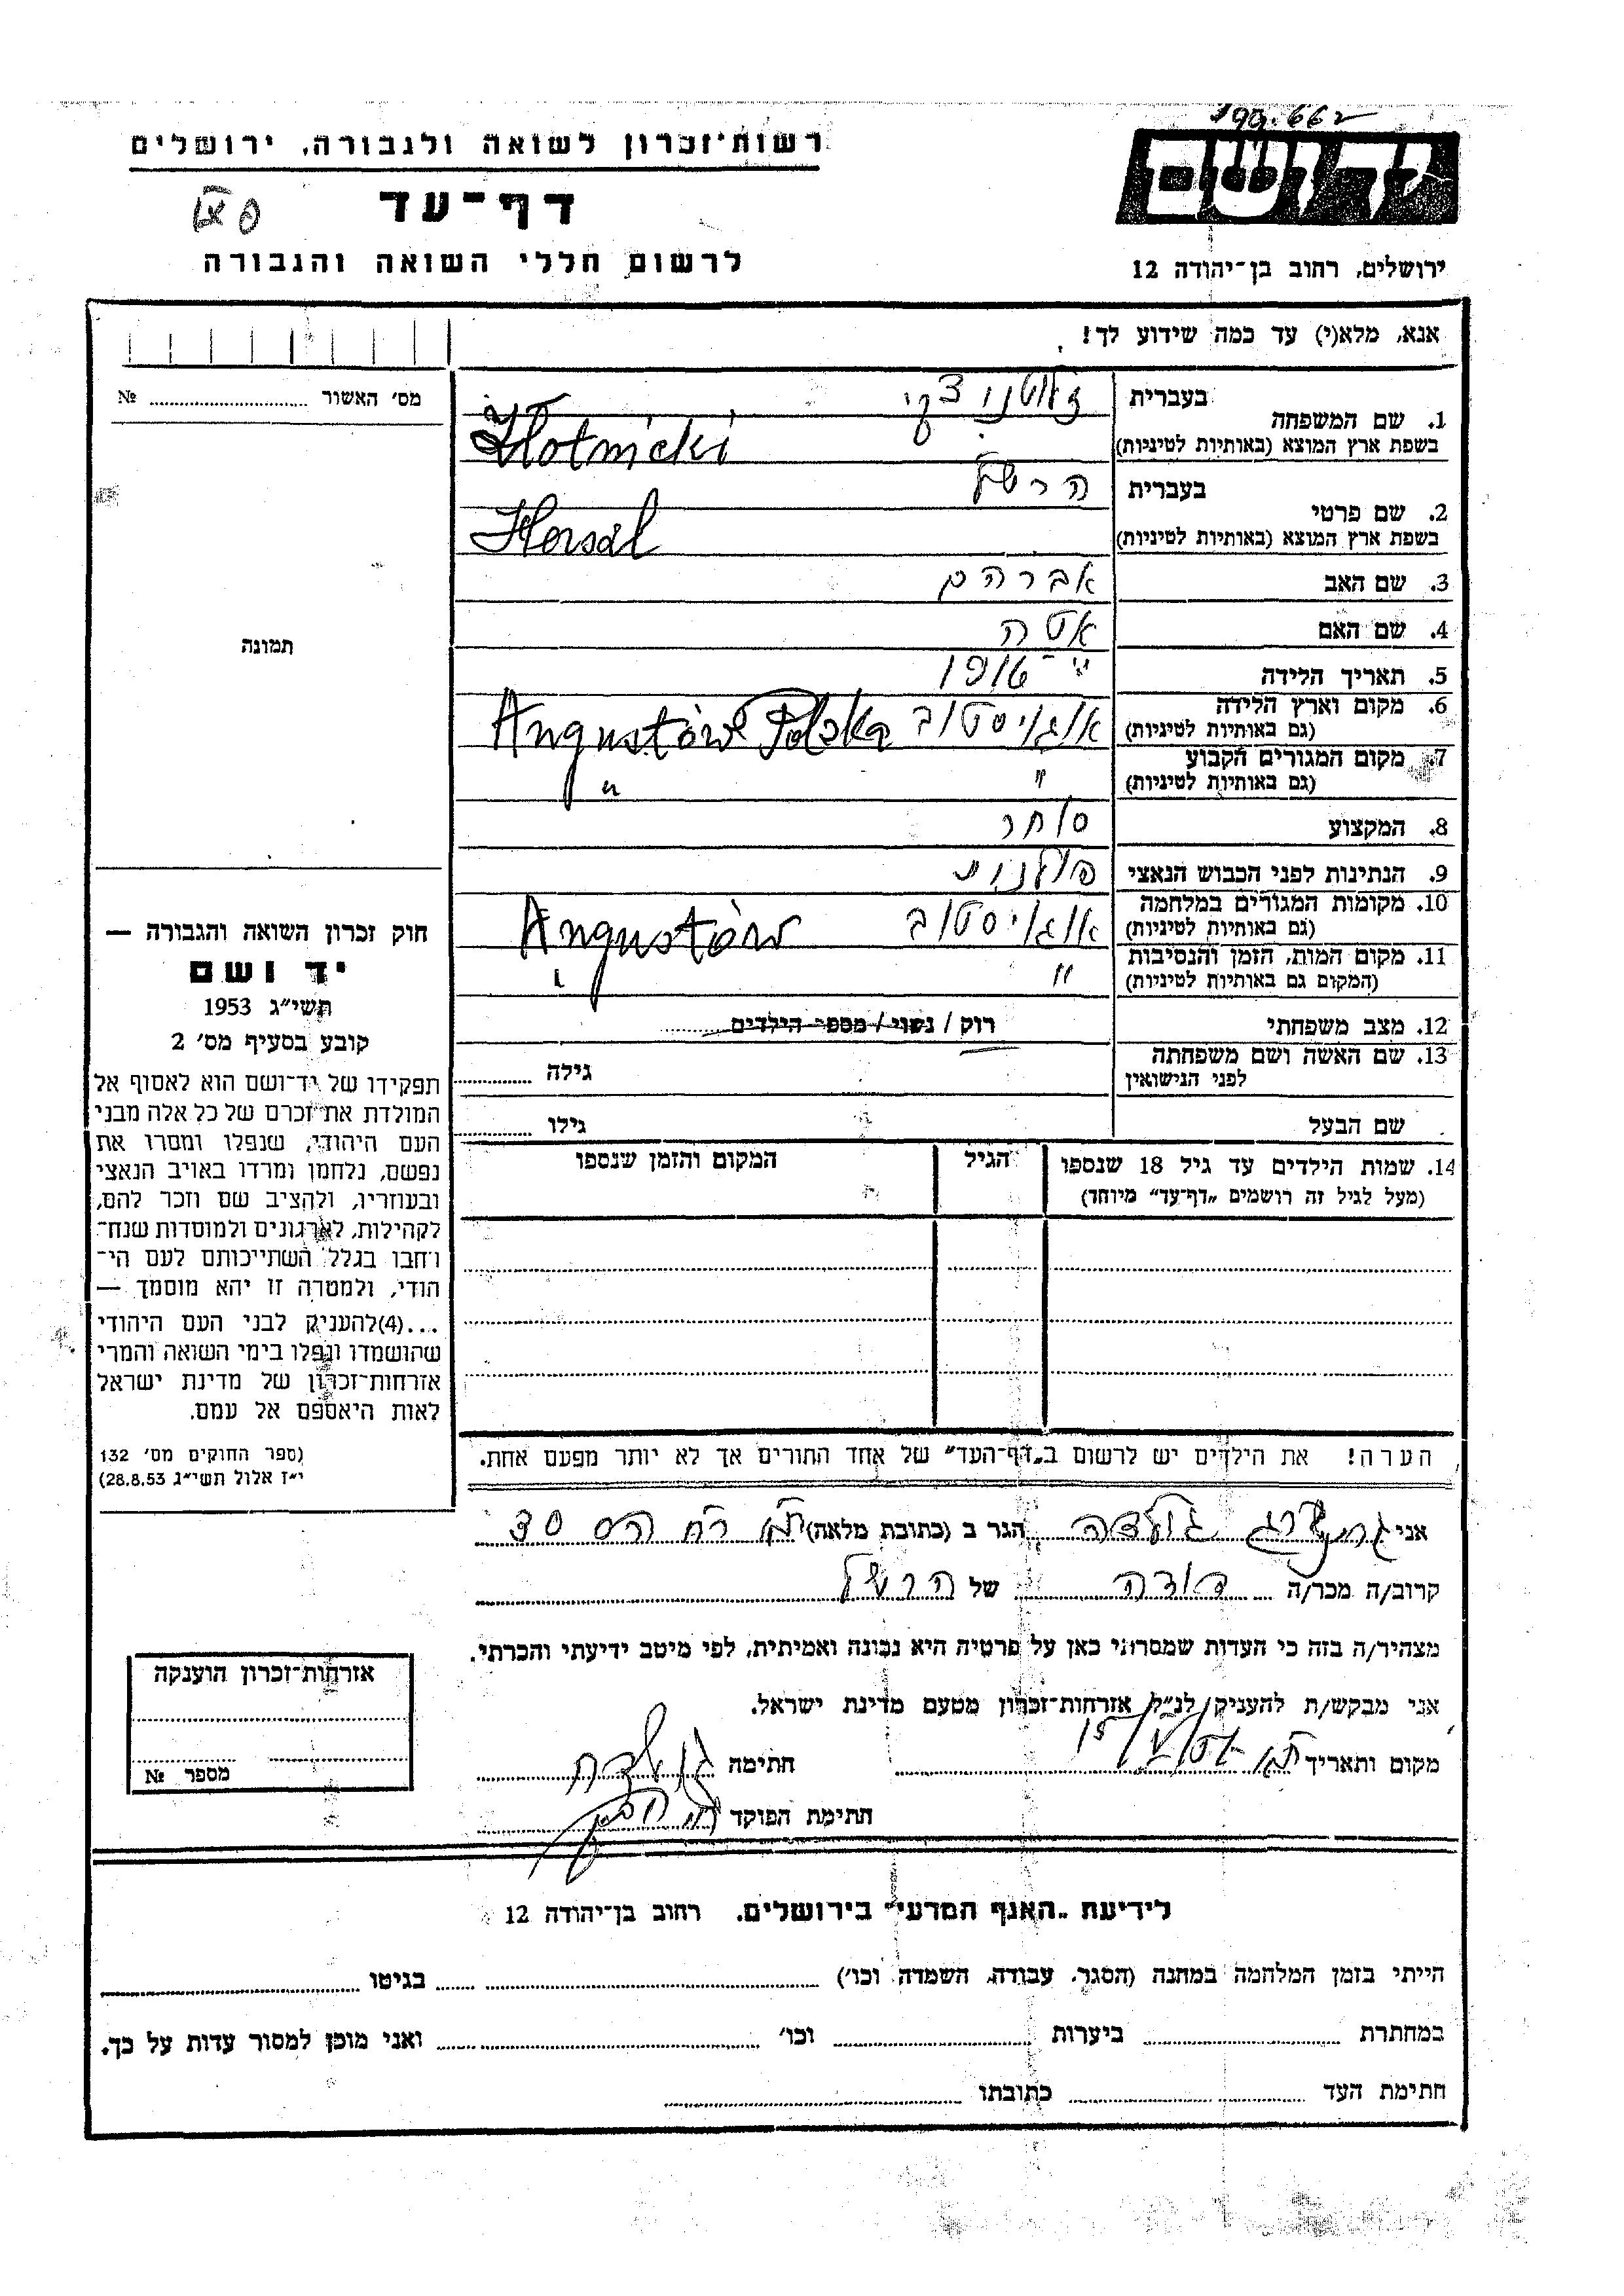 רשות־זכרון לשואה ולגבורה, ירושלים
דף־עד
לרשום חללי השואה והגבורה
יד ושם
ירושלים, רחוב בן־יהודה 12
אנא, מלא(י) עד כמה שידוע לך!
מס׳ האשור № 
1. שם המשפחה בעברית זלוטניצקי
בשפת ארץ המוצא (באותיות לטיניות) Złotnicki
2. שם פרטי בעברית הרשל
בשפת ארץ המוצא (באותיות לטיניות) Hersal
3. שם האב אברהם
4. שם האם אטה
5. תאריך הלידה
6. מקום וארץ הלידה (גם באותיות לטיניות) אוגויסטוב Augustów Polska
7. מקום המגורים הקבוע (גם באותיות לטיניות) " "
8. המקצוע סוחר
9. הנתינות לפני הכבוש הנאצי
10. מקומות המגורים במלחמה (גם באותיות לטיניות) אוגויסטוב Augustów
11. מקום המות, הזמן והנסיבות (המקום גם באותיות לטיניות) " "
12. מצב משפחתי רוק / נשוי / מספר הילדים
13. שם האשה ושם משפחתה לפני הנישואין גילה
שם הבעל גילו
14. שמות הילדים עד גיל 18 שנספו (מעל לגיל זה רושמים „דף־עד״ מיוחד) הגיל המקום והזמן שנספו
תמונה
חוק זכרון השואה והגבורה —
יד ושם
תשי״ג 1953
קובע בסעיף מס׳ 2
תפקידו של יד־ושם הוא לאסוף אל
המולדת את זכרם של כל אלה מבני
העם היהודי, שנפלו ומסרו את
נפשם, נלחמו ומרדו באויב הנאצי
ובעוזריו, ולהציב שם וזכר להם,
לקהילות, לארגונים ולמוסדות שנח־
רחבו בגלל השתייכותם לעם הי־
הודי, ולמטרה זו יהא מוסמך —
...(4)להעניק לבני העם היהודי
שהושמדו ונפלו בימי השואה והמרי
אזרחות־זכרון של מדינת ישראל
לאות היאספם אל עמם.
(ספר החוקים מס׳ 132
י״ז אלול תשי״ג 28.8.53)
הערה! את הילדים יש לרשום ב„דף־העד״ של אחד ההורים אך לא יותר מפעם אחת.
אני גולדה הגר ב (כתובת מלאה)
קרוב/ה מכר/ה דודה של הרשל
מצהיר/ה בזה כי העדות שמסרתי כאן על פרטיה היא נכונה ואמיתית, לפי מיטב ידיעתי והכרתי.
אני מבקש/ת להעניק לנ״ל אזרחות־זכרון מטעם מדינת ישראל.
מקום ותאריך חתימה גולדה
חתימת הפוקד
אזרחות־זכרון הוענקה
מספר №
לידיעת „האגף המדעי״ בירושלים, רחוב בן־יהודה 12
הייתי בזמן המלחמה במחנה (הסגר, עבודה, השמדה וכו׳) בגיטו
במחתרת ביערות וכו׳ ואני מוכן למסור עדות על כך.
חתימת העד כתובתו